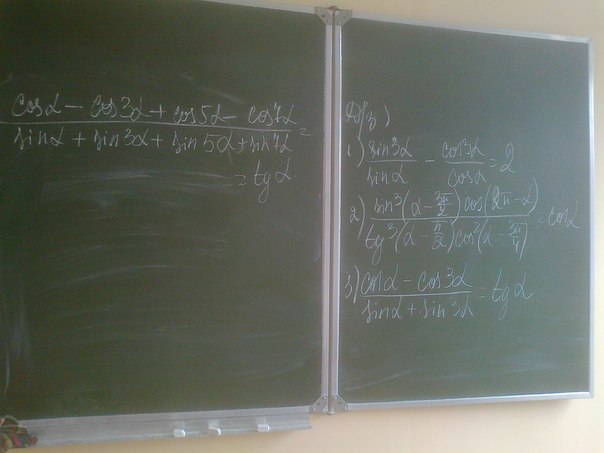 cosα − cos3α + cos5α − cos7α
sinα + sin3α + sin5α + sin7α =
= tgα
Д/з)
1) sin3α/sinα − cos3α/cosα = 2
2) sin³(α − 3π/2) cos(2π − α) / tg³(α − π/2) cos²(α − 3π/4) = cosα
3) cosα − cos3α / sinα + sin3α = tgα